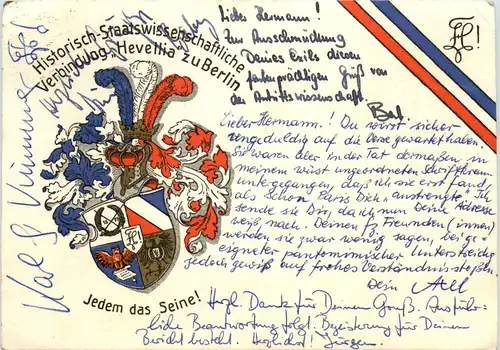 Historisch-Staatswissenschaftliche
Verbindung "Helvetia" zu Berlin
Jedem das Seine!
Lieber Hermann!
Zur Ausschmückung
Deines Exils diesen
farbenprächtigen Gruß von
der Antrittswissenschaft.
Lieber Hermann! Du wirst sicher
ungeduldig auf die Verse gewartet haben.
Sie waren aber in der Tat dermaßen in
meinem wüst ungeordneten Schriftkram
untergegangen, daß ich sie erst fand,
als schon Paris Dich "anstrengte". Ich
sende sie Dir, da ich nun Deine Adresse
weiß nach. Deinen Freunden (innen)
werden sie zwar wenig sagen, bei ge-
eigneter pantomimischer Unterstreichung
jedoch gewiß auf frohes Verständnis stoßen
Dein
Hrzl. Dank für Deinen Gruß. Ausführ-
liche Beantwortung folgt. Begeisterung für Deinen
Bericht besteht. Herzlichst! Jürgen.
Karl